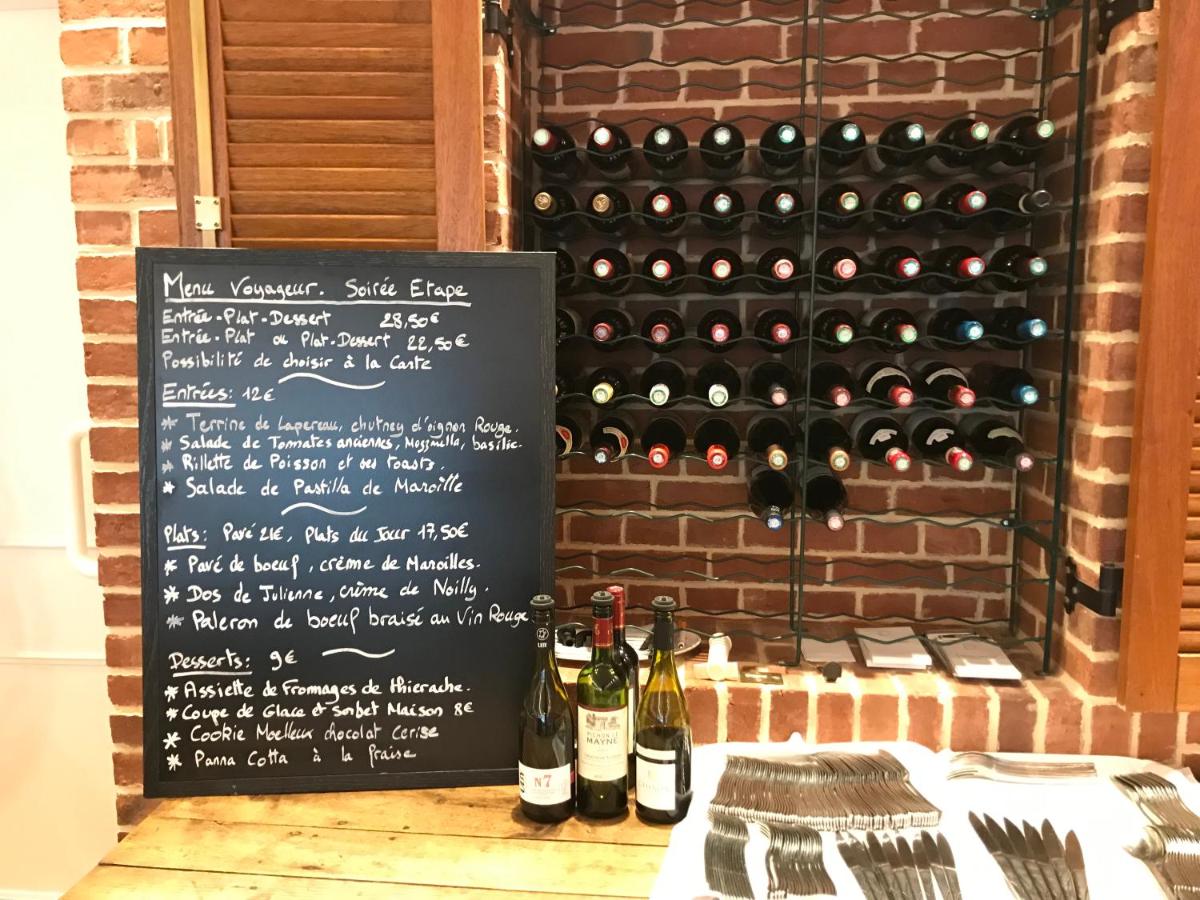 Menu Voyageur. Soirée Etape
Entrée-Plat-Dessert 28,50€
Entrée-Plat ou Plat-Dessert 22,50€
Possibilité de choisir à la Carte
Entrées: 12€
* Terrine de Lapereau, chutney d'oignon Rouge.
* Salade de Tomates anciennes, Mozzarella, basilic.
* Rillette de Poisson et ses toasts.
* Salade de Pastilla de Maroille
Plats: Pavé 21€, Plats du Jour 17,50€
* Pavé de boeuf, crème de Maroilles.
* Dos de Julienne, crème de Noilly.
* Paleron de boeuf braisé au Vin Rouge
Desserts: 9€
* Assiette de Fromages de thierache.
* Coupe de Glace et Sorbet Maison 8€
* Cookie Moelleux chocolat Cerise
* Panna Cotta à la fraise
N°7
MAYNE